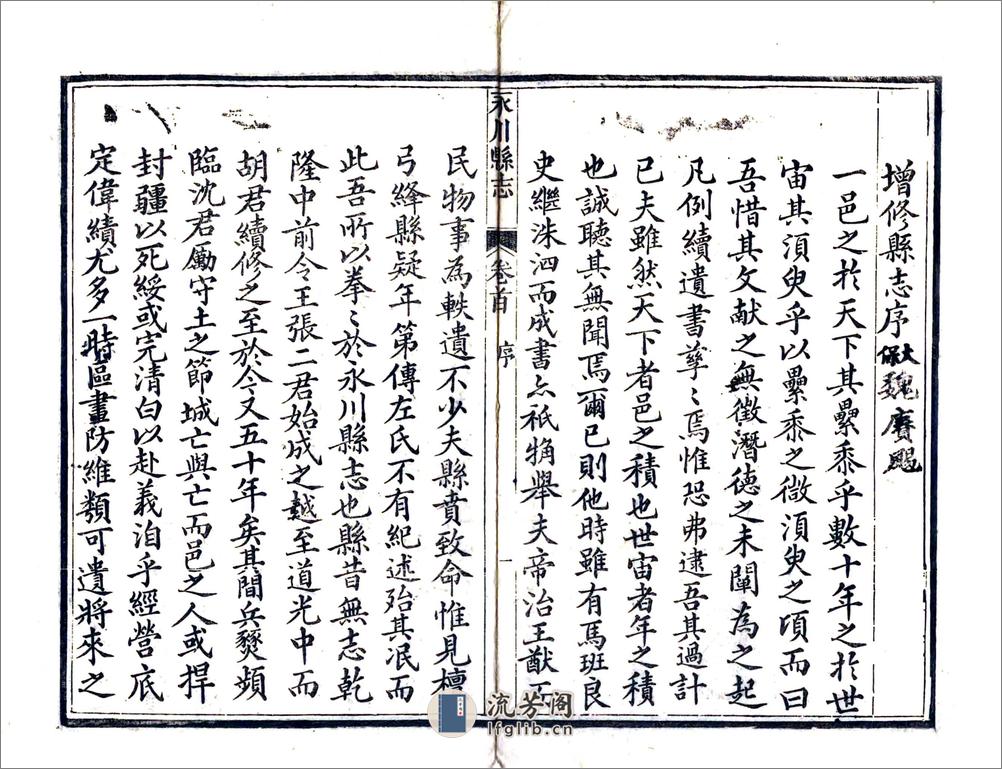 增修縣志序 大保 魏賡颺
一邑之於天下其纍黍乎數十年之於世
宙其湏臾乎以纍黍之微湏臾之頃而曰
吾惜其文献之無徵潛德之未闡為之起
凡例續遺書孳〻焉惟恐弗逮吾其過計
已夫雖然天下者邑之積也世宙者年之積
也誠聽其無聞焉爾已則他時雖有馬班良
史繼洙泗而成書亦祇觕舉夫帝治王猷
永川縣志 卷首 序 一
民物事為軼遺不少夫縣賁致命惟見檀
弓絳縣疑年第傳左氏不有紀述殆其泯而
此吾所以拳〻於永川縣志也縣昔無志乾
隆中前令王張二君始成之越至道光中而
胡君續修之至於今又五十年矣其間兵燹頻
臨沈君勵守土之節城亡與亡而邑之人或捍
封疆以死綏或完清白以赴義洎乎經營底
定偉績尤多一時區畫防維類可遺將來之
流芳阁
lfglib.cn